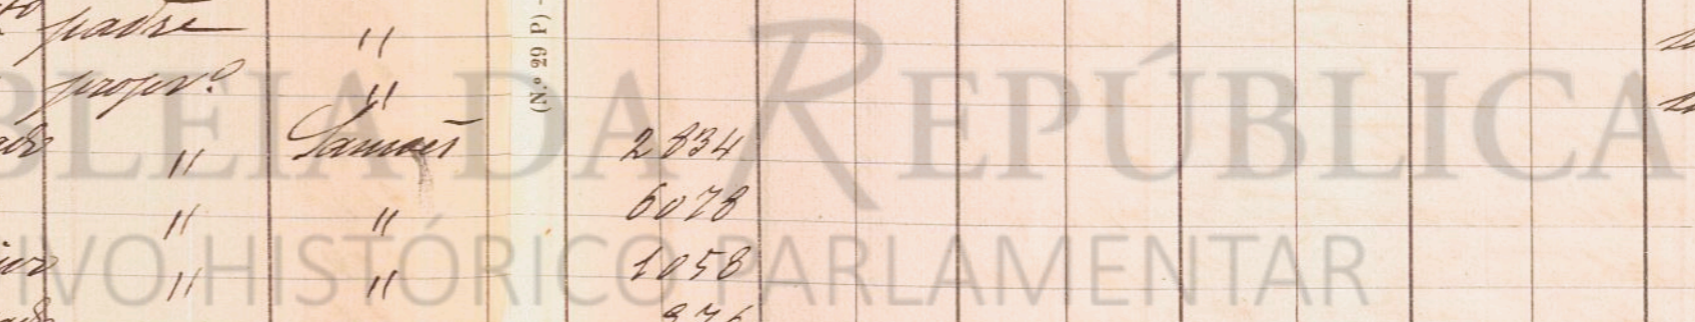 padre "
propr.º "
" Samões 2834
" " 6078
" " 1058
(N.º 29 P)
BLEIA DA REPÚBLICA
IVO HISTÓRICO PARLAMENTAR